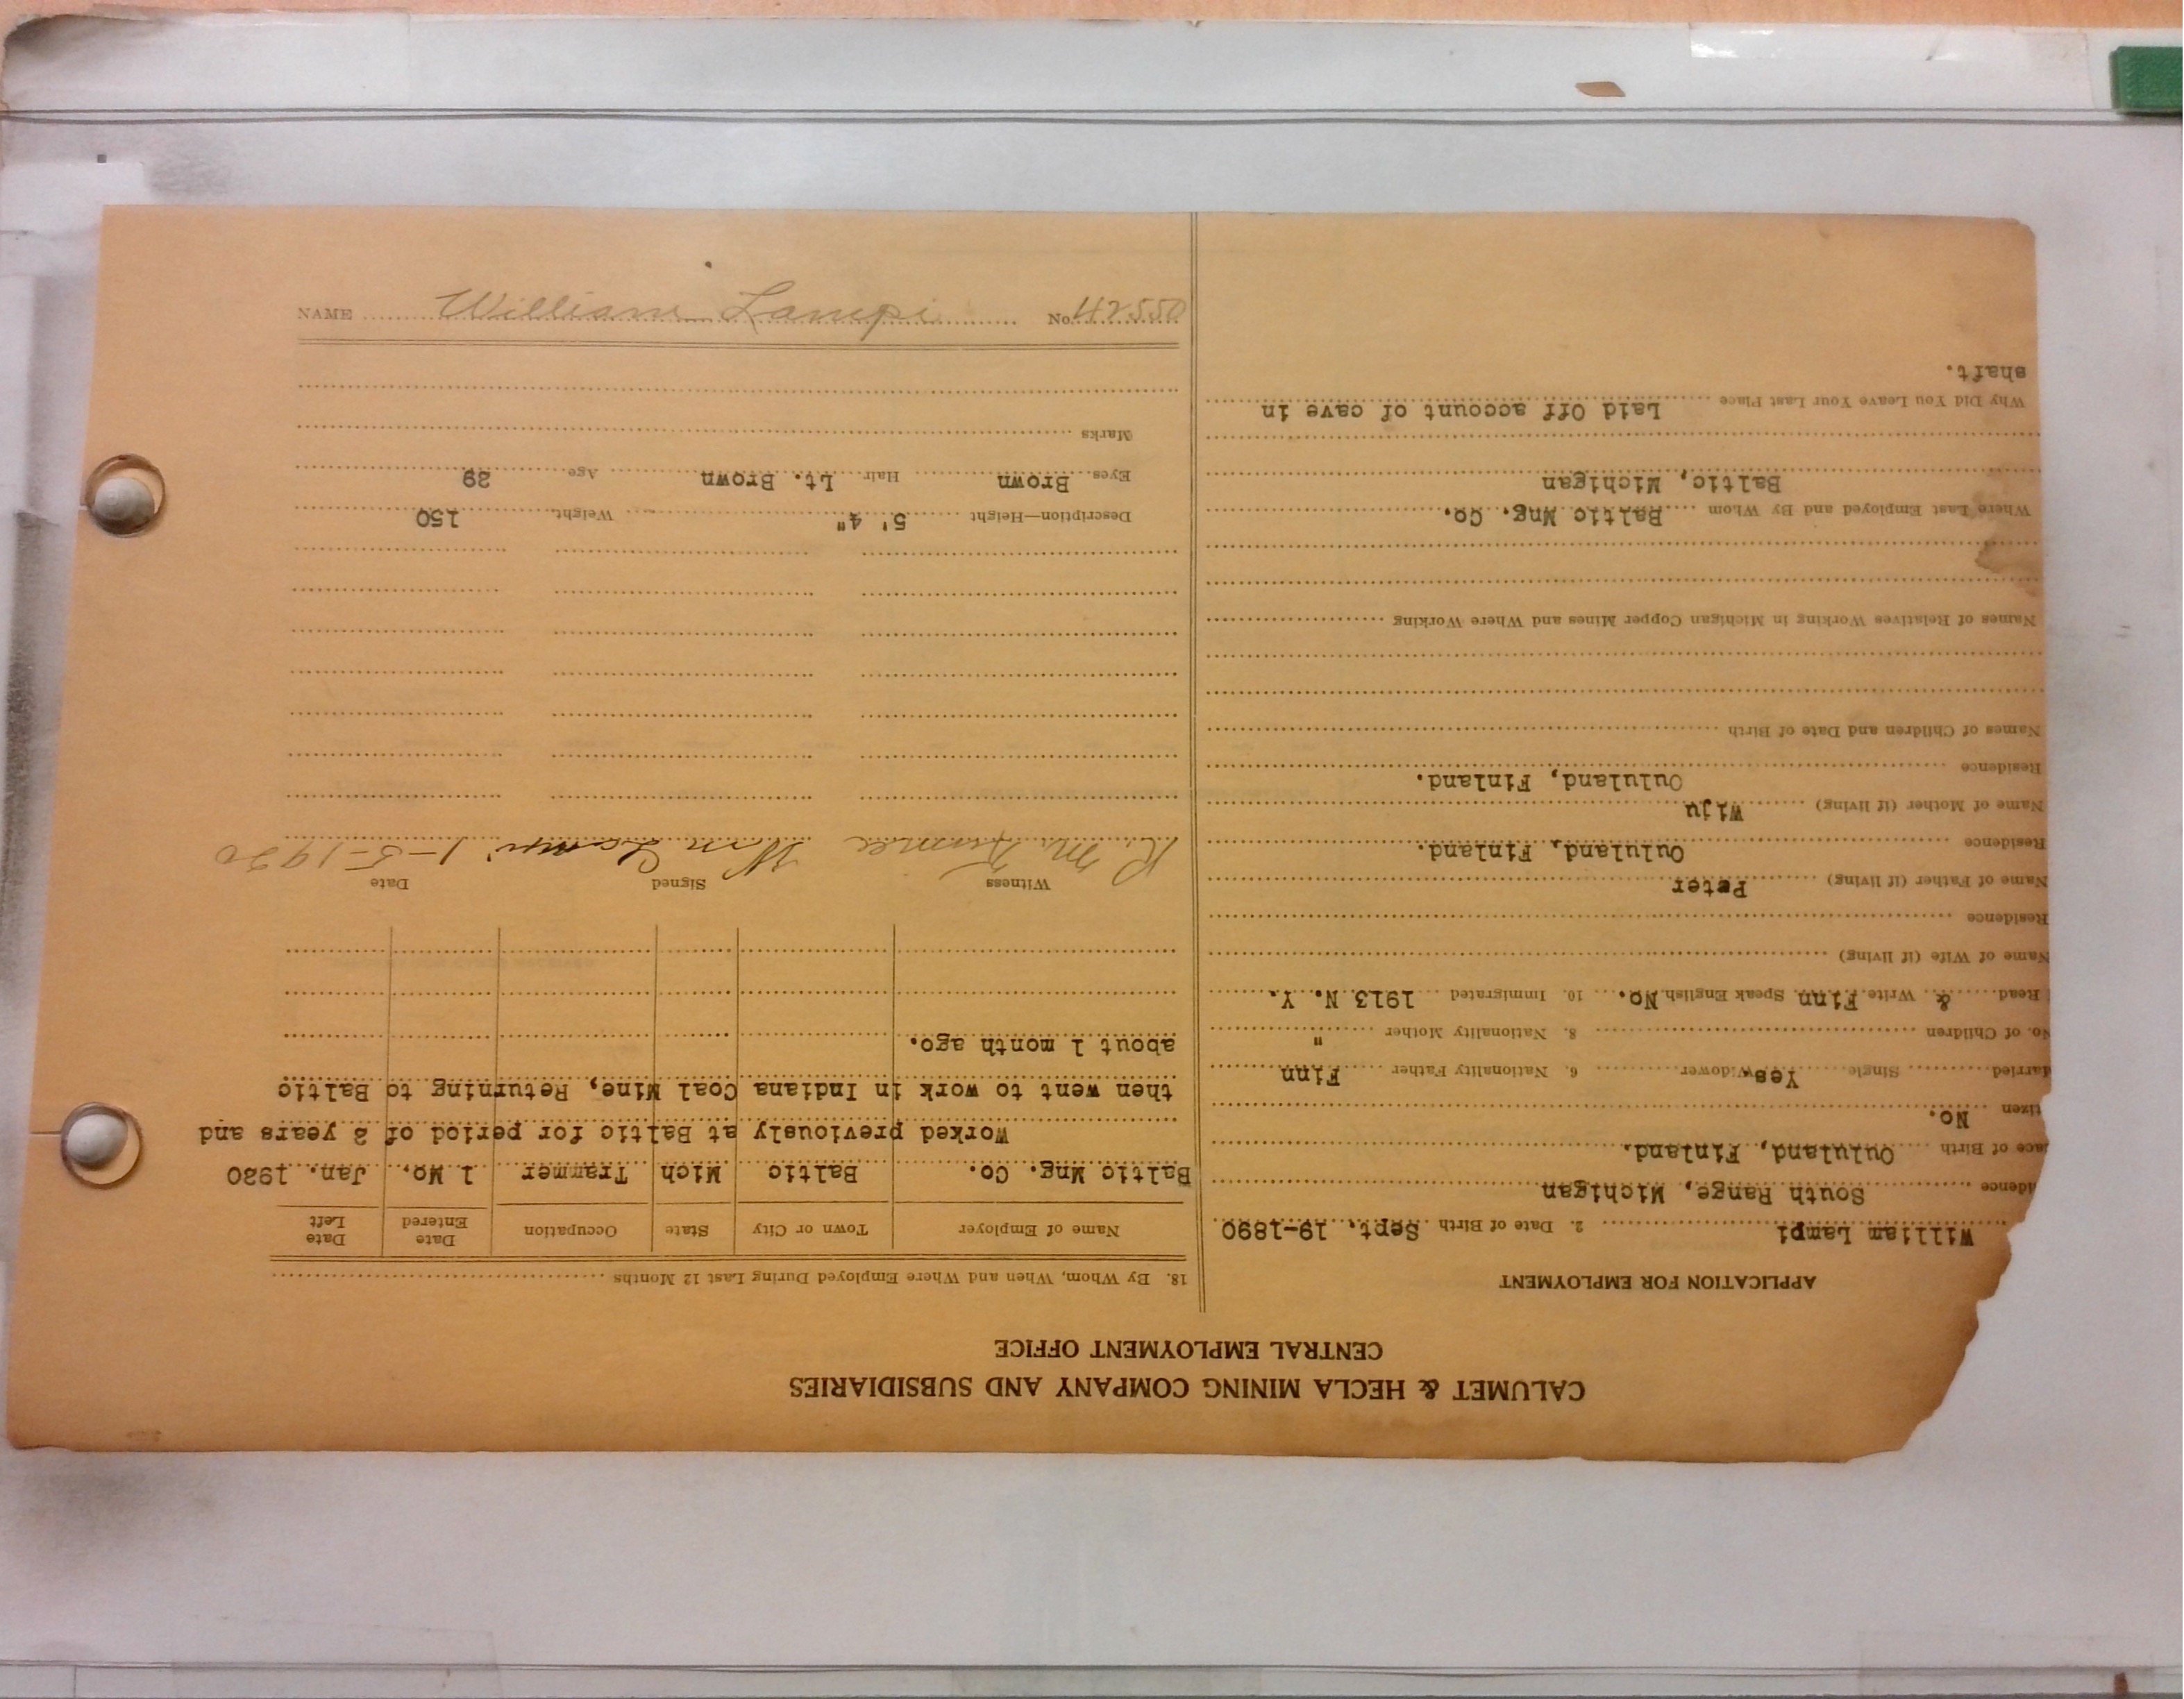 CALUMET & HECLA MINING COMPANY AND SUBSIDIARIES
CENTRAL EMPLOYMENT OFFICE
APPLICATION FOR EMPLOYMENT
William Lampi 2. Date of Birth Sept. 19-1890
idence South Range, Michigan
ace of Birth Oululand, Finland.
tizen No.
arried Single Yes Widower 6. Nationality Father Finn
No. of Children 8. Nationality Mother "
Read & Write Finn Speak English No. 10. Immigrated 1913 N. Y.
Name of Wife (if living)
Residence
Name of Father (if living) Peter
Residence Oululand, Finland.
Name of Mother (if living) Wiju
Residence Oululand, Finland.
Names of Children and Date of Birth
Names of Relatives Working in Michigan Copper Mines and Where Working
Where Last Employed and By Whom Baltic Mng. Co.
Baltic, Michigan
Why Did You Leave Your Last Place Laid Off account of cave in
shaft.
18. By Whom, When and Where Employed During Last 12 Months
Name of Employer Town or City State Occupation Date Entered Date Left
Baltic Mng. Co. Baltic Mich Trammer 1 Mo. Jan. 1920
Worked previously at Baltic for period of 2 years and
then went to work in Indiana Coal Mine, Returning to Baltic
about 1 month ago.
Witness Signed Date
R. M. Wm Lampi 1-5-1920
Description—Height 5' 4" Weight 150
Eyes Brown Hair Lt. Brown Age 29
Marks
NAME William Lampi No. 42550